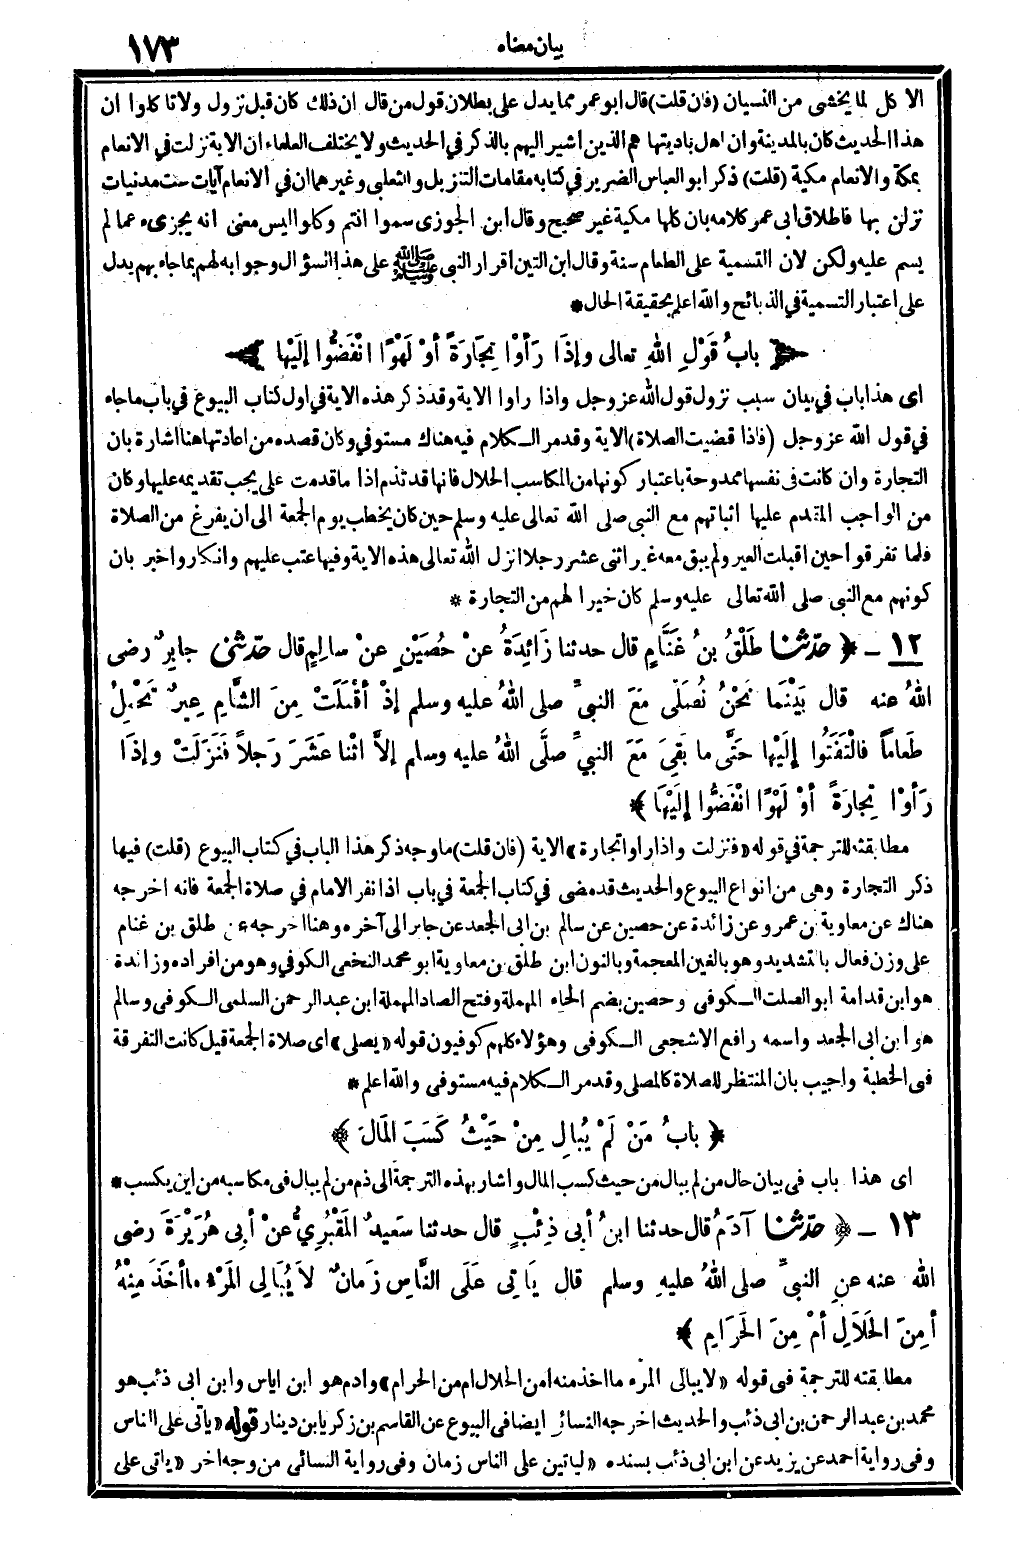 بيان معناه ١٧٣
الاكل لما يخشى من النسيان (فان قلت) قال ابو عمر مما يدل على بطلان قول من قال ان ذلك كان قبل نزول ولا تاكلوا ان
هذا الحديث كان بالمدينة وان اهل باديتها هم الذين اشير اليهم بالذكر في الحديث ولا يختلف العلماء ان الاية نزلت في الانعام
بمكة والانعام مكية (قلت) ذكر ابو العباس الضرير في كتابه مقامات التنزيل والثعلبي وغيرهما ان في الانعام آيات ست مدنيات
نزلن بها فاطلاق ابى عمر كلامه بان كلها مكية غير صحيح وقال ابن الجوزى سموا انتم وكلوا ليس معنى انه يجزىء عما لم
يسم عليه ولكن لان التسمية على الطعام سنة وقال ابن التين اقرار النبي ﷺ على هذا السؤال وجوابه لهم بما جاء بهم يدل
على اعتبار التسمية في الذبائح والله اعلم بحقيقة الحال *
﴿ بابُ قَوْلِ اللهِ تعالى وإذَا رَأَوْا تِجَارَةً أوْ لَهْوًا انْفَضُّوا إلَيْهَا ﴾
اى هذا باب في بيان سبب نزول قول الله عز وجل واذا راوا الاية وقد ذكر هذه الاية في اول كتاب البيوع في باب ما جاء
في قول الله عز وجل (فاذا قضيت الصلاة) الاية وقد مر الكلام فيه هناك مستوفي وكان قصده من اعادتها هنا اشارة بان
التجارة وان كانت فى نفسها ممدوحة باعتبار كونها من المكاسب الحلال فانها قد تذم اذا ما قدمت على يجب تقديمه عليها وكان
من الواجب المقدم عليها اثباتهم مع النبي صلى الله تعالى عليه وسلم حين كان يخطب يوم الجمعة الى ان يفرغ من الصلاة
فلما تفرقوا حين اقبلت العير ولم يبق معه غير اثنى عشر رجلا انزل الله تعالى هذه الاية وفيها عتب عليهم وانكار واخبر بان
كونهم مع النبى صلى الله تعالى عليه وسلم كان خيرا لهم من التجارة *
١٢ - ﴿ حدّثنا طَلْقُ بنُ غَنَّامٍ قال حدثنا زَائِدَةُ عنْ حُصَيْنٍ عنْ سالِمٍ قال حدّثنى جابِرٌ رضى
اللهُ عنه قال بَيْنَمَا نَحْنُ نُصَلِّى مَعَ النبيِّ صلى اللهُ عليه وسلم إذْ أقْبَلَتْ مِنَ الشَّامِ عِيرٌ تَحْمِلُ
طَعاماً فالْتَفَتُوا إلَيْها حَتَّى ما بَقِيَ مَعَ النبيِّ صلَّى اللهُ عليه وسلم إلاَّ اثْنا عَشَرَ رَجلاً فَنَزَلَتْ وإذَا
رَأوْا تِجارَةً أوْ لَهْوًا انْفَضُّوا إلَيْهَا ﴾ *
مطابقته للترجمة في قوله «فنزلت واذا راوا تجارة» الاية (فان قلت) ما وجه ذكر هذا الباب في كتاب البيوع (قلت) فيها
ذكر التجارة وهى من انواع البيوع والحديث قد مضى في كتاب الجمعة في باب اذا نفر الامام في صلاة الجمعة فانه اخرجه
هناك عن معاوية بن عمرو عن زائدة عن حصين عن سالم بن ابى الجعد عن جابر الى آخره وهنا اخرجه عن طلق بن غنام
على وزن فعال بالتشديد وهو بالغين المعجمة وبالنون ابن طلق بن معاوية ابو محمد النخعى الكوفي وهو من افراده وزائدة
هو ابن قدامة ابو الصلت الكوفى وحصين بضم الحاء المهملة وفتح الصاد المهملة ابن عبد الرحمن السلمى الكوفى وسالم
هو ابن ابى الجعد واسمه رافع الاشجعى الكوفى وهؤلاء كلهم كوفيون قوله «يصلى» اى صلاة الجمعة قيل كانت التفرقة
فى الخطبة واجيب بان المنتظر للصلاة كالمصلى وقد مر الكلام فيه مستوفى والله اعلم *
﴿ بابُ مَنْ لَمْ يُبالِ مِنْ حَيْثُ كَسَبَ المَالَ ﴾
اى هذا باب فى بيان حال من لم يبال من حيث كسب المال واشار بهذه الترجمة الى ذم من لم يبال فى مكاسبه من اين يكسب *
١٣ - ﴿ حدّثنا آدَمُ قال حدثنا ابنُ أبى ذِئْبٍ قال حدثنا سَعيدٌ المَقْبُرِيُّ عنْ أبِى هُرَيْرَةَ رضى
اللهُ عنه عنِ النبيِّ صلى اللهُ عليهِ وسلم قال يَاتِى عَلَى النَّاسِ زَمانٌ لاَ يُبَالِى المَرْءُ ما أخَذَ مِنْهُ
أمِنَ الحَلاَلِ أمْ مِنَ الحَرَامِ ﴾ *
مطابقته للترجمة فى قوله «لا يبالى المرء ما اخذ منه امن الحلال ام من الحرام» وادم هو ابن اياس وابن ابى ذئب هو
محمد بن عبد الرحمن بن ابى ذئب والحديث اخرجه النسائى ايضا فى البيوع عن القاسم بن زكريا بن دينار قوله «ياتى على الناس
وفى رواية احمد عن يزيد عن ابن ابى ذئب بسنده «لياتين على الناس زمان وفى رواية النسائى من وجه اخر «ياتى على